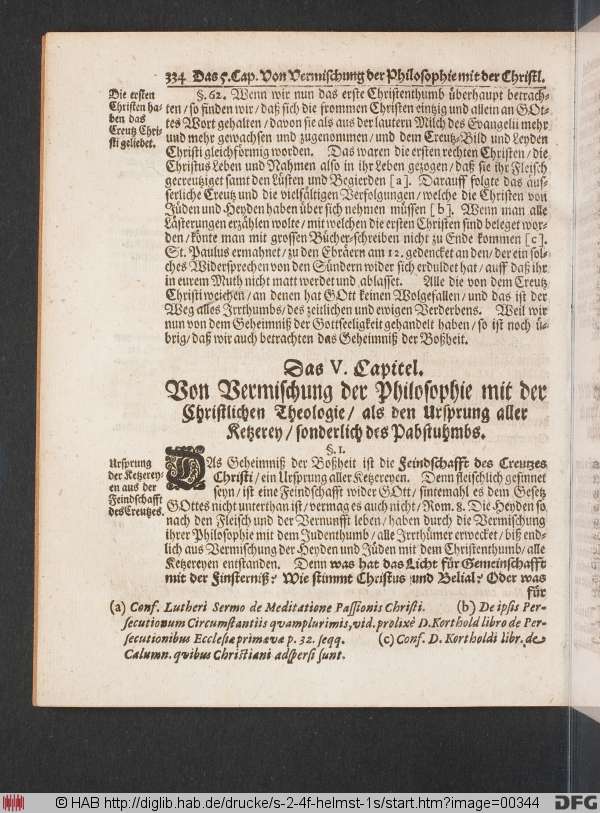 334 Das 5. Cap. Von Vermischung der Philosophie mit der Christl.
Die ersten
Christen ha-
ben das
Creutz Chri-
sti geliebet.
§. 62. Wenn wir nun das erste Christenthum überhaupt betrach-
ten / so finden wir / daß sich die frommen Christen eintzig und allein an GOt-
tes Wort gehalten / davon sie als aus der lautern Milch des Evangelii mehr
und mehr gewachsen und zugenommen / und dem Creutz-Bild und Leyden
Christi gleichförmig worden. Das waren die ersten rechten Christen / die
Christus Leben und Nahmen also in ihr Leben gezogen / daß sie ihr Fleisch
gecreutziget samt den Lüsten und Begierden [a]. Darauff folgte das äus-
serliche Creutz und die vielfältigen Verfolgungen / welche die Christen von
Jüden und Heyden haben über sich nehmen müssen [b]. Wenn man alle
Lästerungen erzählen wolte / mit welchen die ersten Christen sind beleget wor-
den / könte man mit grossen Bücher-schreiben nicht zu Ende kommen [c].
St. Paulus ermahnet / zu den Ebräern am 12. gedencket an den / der ein sol-
ches Widersprechen von den Sündern wider sich erduldet hat / auff daß ihr
in eurem Muth nicht matt werdet und ablasset. Alle die von dem Creutz
Christi weichen / an denen hat GOtt keinen Wolgefallen / und das ist der
Weg alles Irrthumbs / des zeitlichen und ewigen Verderbens. Weil wir
nun von dem Geheimniß der Gottseeligkeit gehandelt haben / so ist noch ü-
brig / daß wir auch betrachten das Geheimniß der Boßheit.
Das V. Capitel.
Von Vermischung der Philosophie mit der
Christlichen Theologie / als den Ursprung aller
Ketzerey / sonderlich des Pabstuhmbs.
§. 1.
Ursprung
der Ketzerey-
en aus der
Feindschafft
des Creutzes.
DAs Geheimniß der Boßheit ist die Feindschafft des Creutzes
Christi / ein Ursprung aller Ketzereyen. Denn fleischlich gesinnet
seyn / ist eine Feindschafft wider GOtt / sintemahl es dem Gesetz
GOttes nicht unterthan ist / vermag es auch nicht / Rom. 8. Die Heyden so
nach den Fleisch und der Vernunfft leben / haben durch die Vermischung
ihrer Philosophie mit dem Judenthumb / alle Irrthümer erwecket / biß end-
lich aus Vermischung der Heyden und Jüden mit dem Christenthumb / alle
Ketzereyen entstanden. Denn was hat das Licht für Gemeinschafft
mit der Finsterniß? Wie stimmt Christus und Belial? Oder was
für
(a) Conf. Lutheri Sermo de Meditatione Passionis Christi. (b) De ipsis Per-
secutionum Circumstantiis qvamplurimis, vid. prolixè D. Korthold libro de Per-
secutionibus Ecclesiæ primævæ p. 32. seqq. (c) Conf. D. Kortholdi libr. de
Calumn. qvibus Christiani adspersi sunt.
© HAB http://diglib.hab.de/drucke/s-2-4f-helmst-1s/start.htm?image=00344
DFG